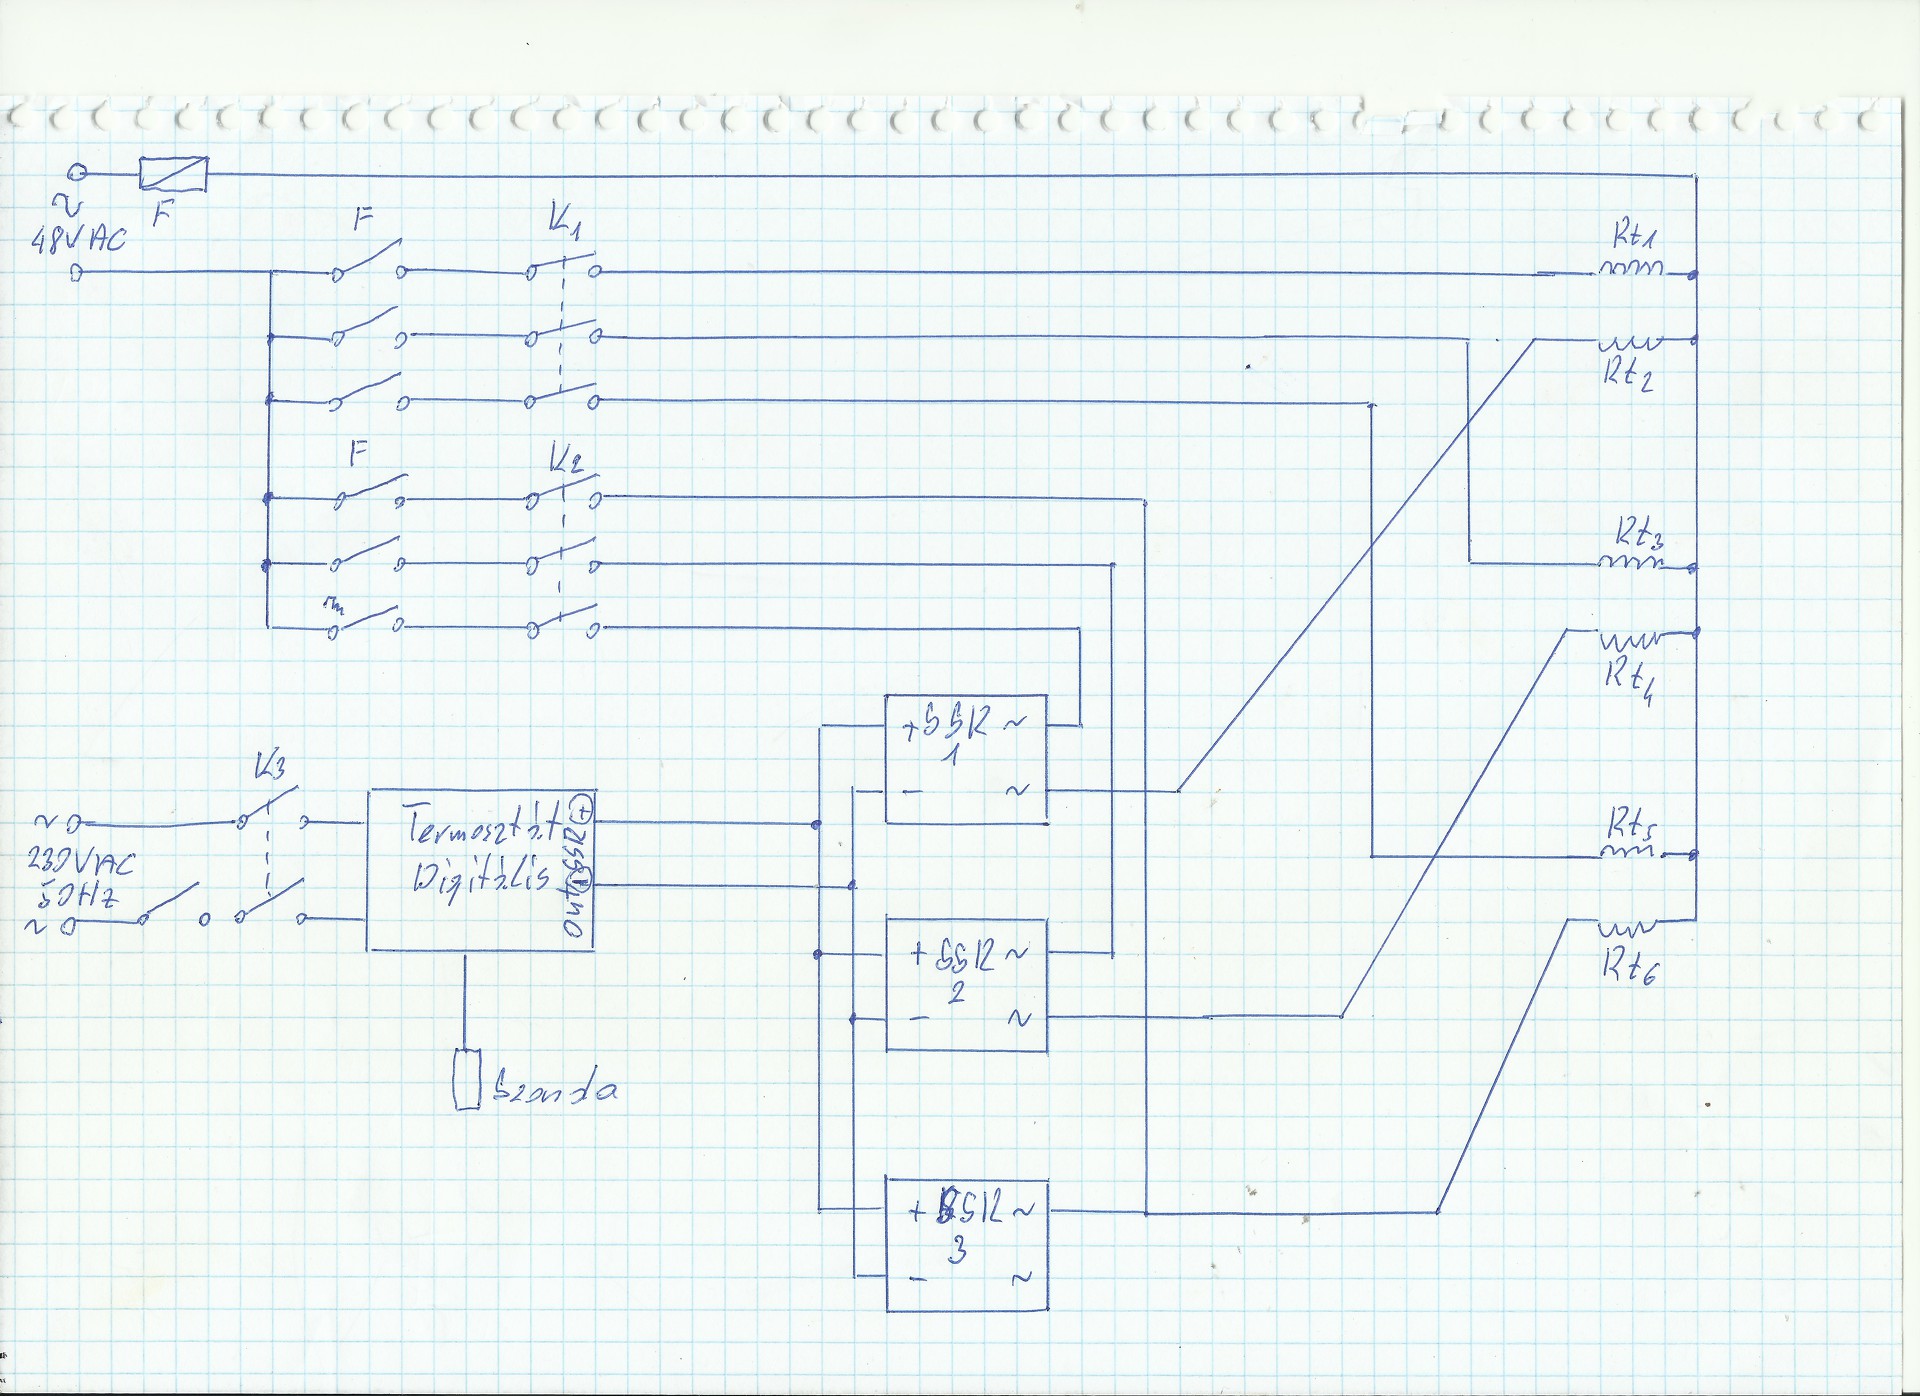 ~
F
48VAC
F
K1
Rt1
Rt2
F
K2
Rt3
Rt4
+SSR ~
1
- ~
K3
~
230VAC
50Hz
~
Termosztát
Digitális
Out SSR
+
-
Rt5
+ SSR ~
2
- ~
Rt6
Szonda
+ SSR ~
3
- ~